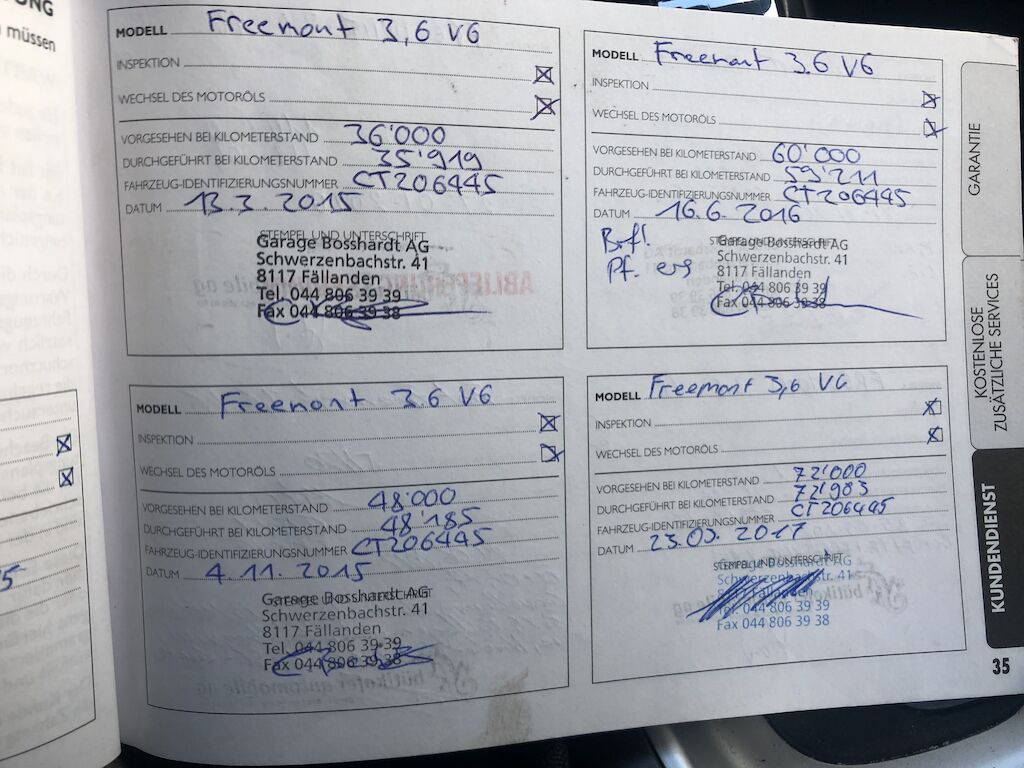 MODELL Freemont 3,6 V6
INSPEKTION
WECHSEL DES MOTORÖLS
VORGESEHEN BEI KILOMETERSTAND 36'000
DURCHGEFÜHRT BEI KILOMETERSTAND 35'919
FAHRZEUG-IDENTIFIZIERUNGSNUMMER CT206445
DATUM 13.3.2015
STEMPEL UND UNTERSCHRIFT
Garage Bosshardt AG
Schwerzenbachstr. 41
8117 Fällanden
Tel. 044 806 39 39
Fax 044 806 39 38
MODELL Freemont 3.6 V6
INSPEKTION
WECHSEL DES MOTORÖLS
VORGESEHEN BEI KILOMETERSTAND 60'000
DURCHGEFÜHRT BEI KILOMETERSTAND 59'211
FAHRZEUG-IDENTIFIZIERUNGSNUMMER CT206445
DATUM 16.6.2016
STEMPEL UND UNTERSCHRIFT
Garage Bosshardt AG
Schwerzenbachstr. 41
8117 Fällanden
Tel. 044 806 39 39
Fax 044 806 39 38
MODELL Freemont 3.6 V6
INSPEKTION
WECHSEL DES MOTORÖLS
VORGESEHEN BEI KILOMETERSTAND 48'000
DURCHGEFÜHRT BEI KILOMETERSTAND 48'185
FAHRZEUG-IDENTIFIZIERUNGSNUMMER CT206445
DATUM 4.11.2015
STEMPEL UND UNTERSCHRIFT
Garage Bosshardt AG
Schwerzenbachstr. 41
8117 Fällanden
Tel. 044 806 39 39
Fax 044 806 39 38
MODELL Freemont 3,6 V6
INSPEKTION
WECHSEL DES MOTORÖLS
VORGESEHEN BEI KILOMETERSTAND 72'000
DURCHGEFÜHRT BEI KILOMETERSTAND 72'983
FAHRZEUG-IDENTIFIZIERUNGSNUMMER CT206445
DATUM 23.05.2017
STEMPEL UND UNTERSCHRIFT
Garage Bosshardt AG
Schwerzenbachstr. 41
8117 Fällanden
Tel. 044 806 39 39
Fax 044 806 39 38
GARANTIE
KOSTENLOSE
ZUSÄTZLICHE SERVICES
KUNDENDIENST
35
müssen